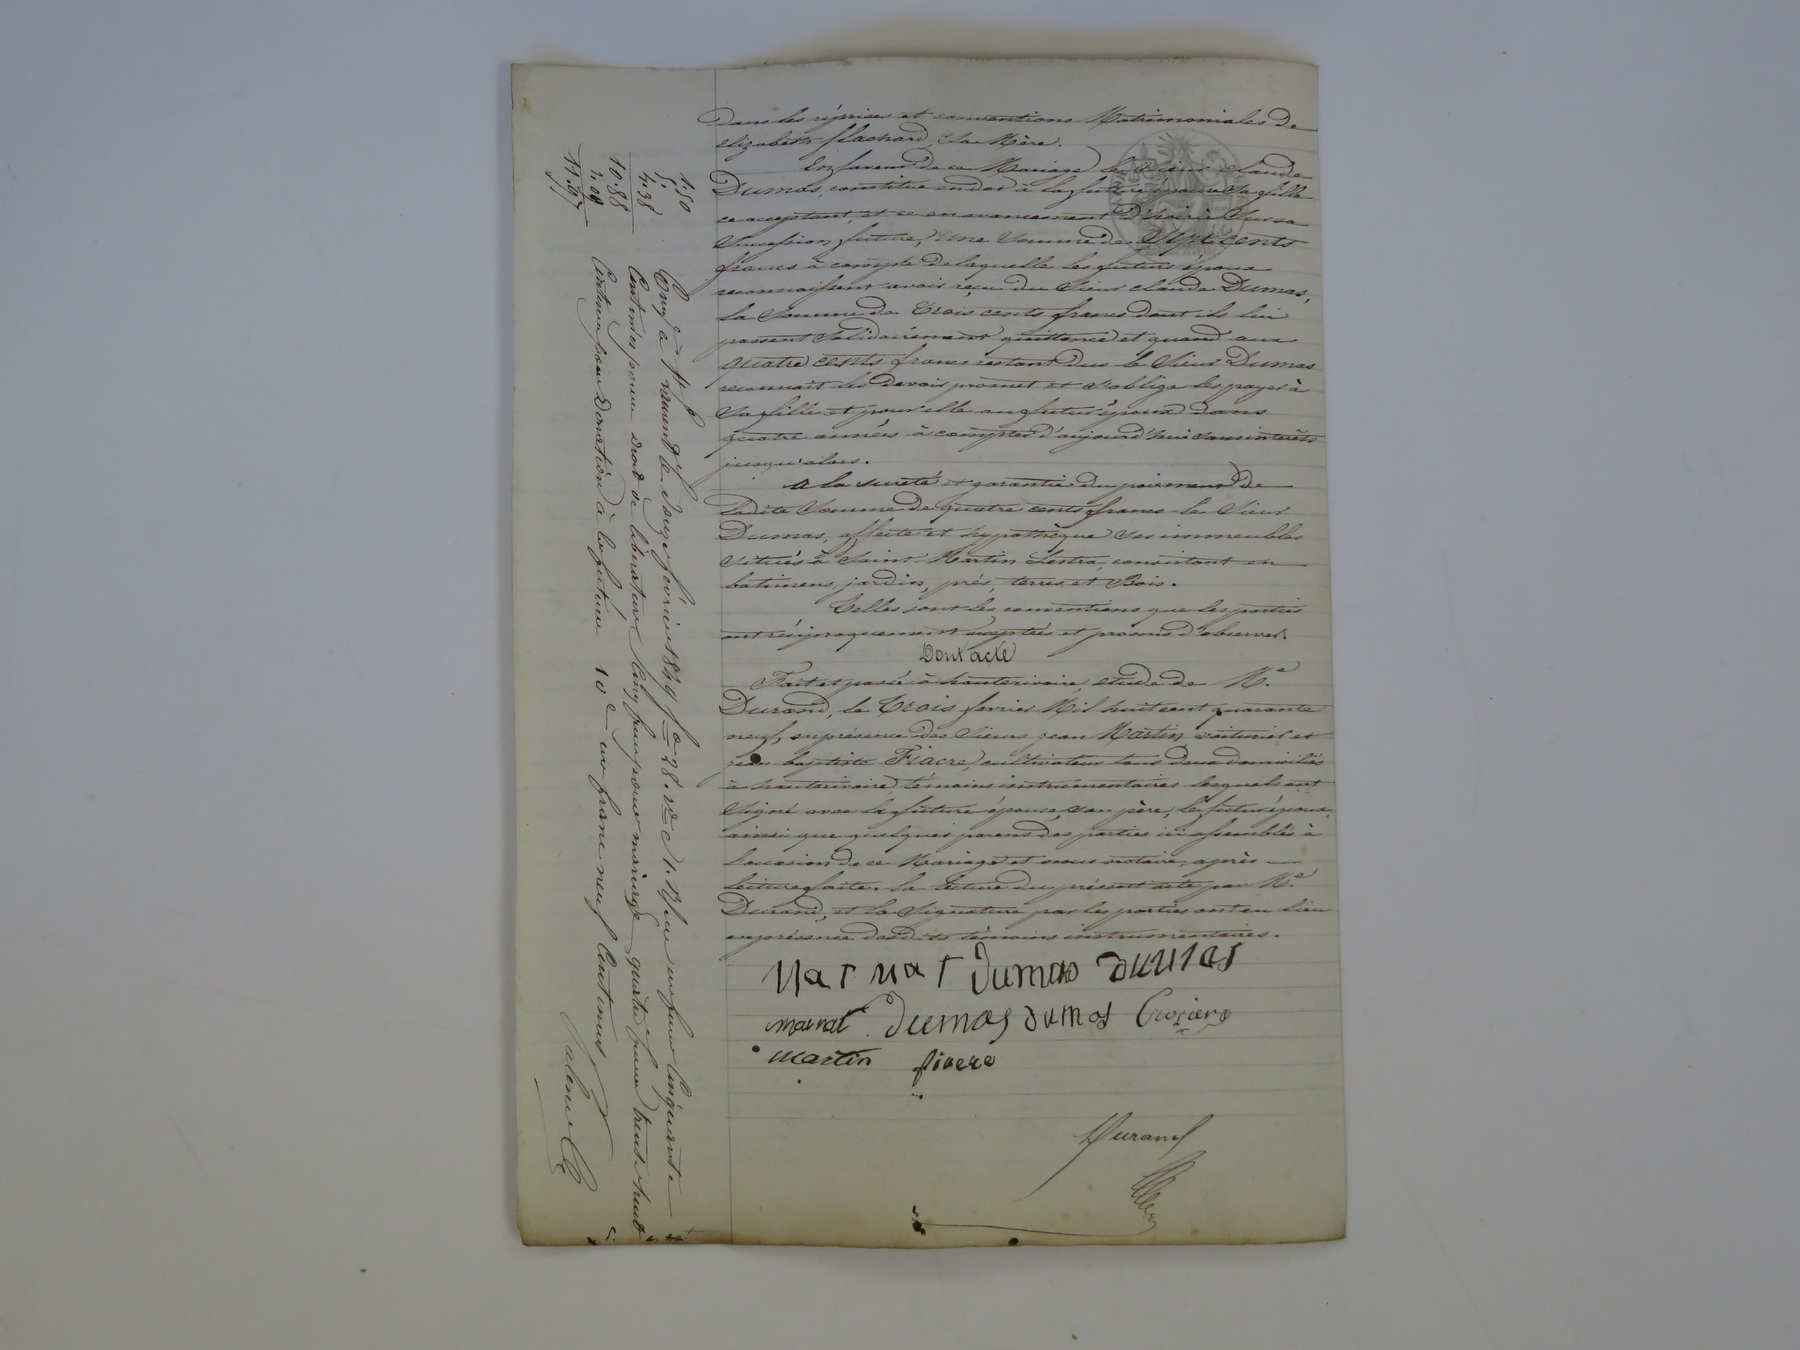 Dans les réprises et conventions Matrimoniales de
elizabeth flachard, sa Mère.
En faveur de ce Mariage, le Sieur claude
Dumas, constitue en dot à la future épouse sa fille
ce acceptant, et ce en avancement D'hoirie sur sa
Succession future, une Somme de Sept cents
francs à compte de laquelle les futurs époux
reconnaissent avoir reçu du Sieur claude Dumas,
la Somme de Trois cents francs dont ils lui
passent Solidairement quittance et quand aux
quatre cents francs restant dus le Sieur Dumas
reconnait les devoir promet et s'oblige les payer à
sa fille et pour elle au futur époux dans
quatre années à compter d'aujourd'hui sans intérêts
jusqu'alors.
A la sureté et garantie du paiement de
Ladite Somme de quatre cents francs le Sieur
Dumas, affecte et hypothèque ses immeubles
situés à Saint Martin Lestra, consistant en
batimens, jardin, prés, terres et Bois.
Telles sont les conventions que les parties
ont réciproquement acceptées et promis d'observer.
Dont acte
Fait et passé à hauterivoire, etude de Me
Durand, le Trois fevrier Mil huit cent quarante
neuf, en présence des Sieurs jean Martin voiturier et
jean baptiste Fiacre, cultivateur tous deux domiciliés
à hauterivoire, témoins instrumentaires lesquels ont
Signé avec la future épouse, son père, le futur époux,
ainsi que quelques parens des parties ici assemblés à
l'occasion de ce Mariage et nous notaire, après
lecture faite. La lecture du présent acte par Me
Durand, et la Signature par les parties ont eu lieu
en présence desdits témoins instrumentaires.
Dumas Dumas
Dumas dumas
martin fiacre
Durand
1.50
5.
4.38
10.88
1.09
11.97
Enregé à St le Douze février 1849 fo 28. Vo C 1. Reçu un franc Cinquante
Centimes pour Droit de libération Cinq francs pour mariage quatre francs trente huit
Centimes pour Donation à la future 10e un franc neuf Centimes